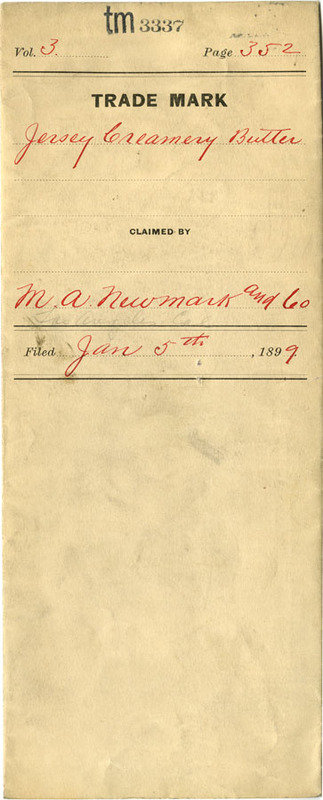 tm 3337
Vol. 3. Page 352
TRADE MARK
Jersey Creamery Butter
CLAIMED BY
M. A. Newmark and Co
Filed Jan 5th, 1899.